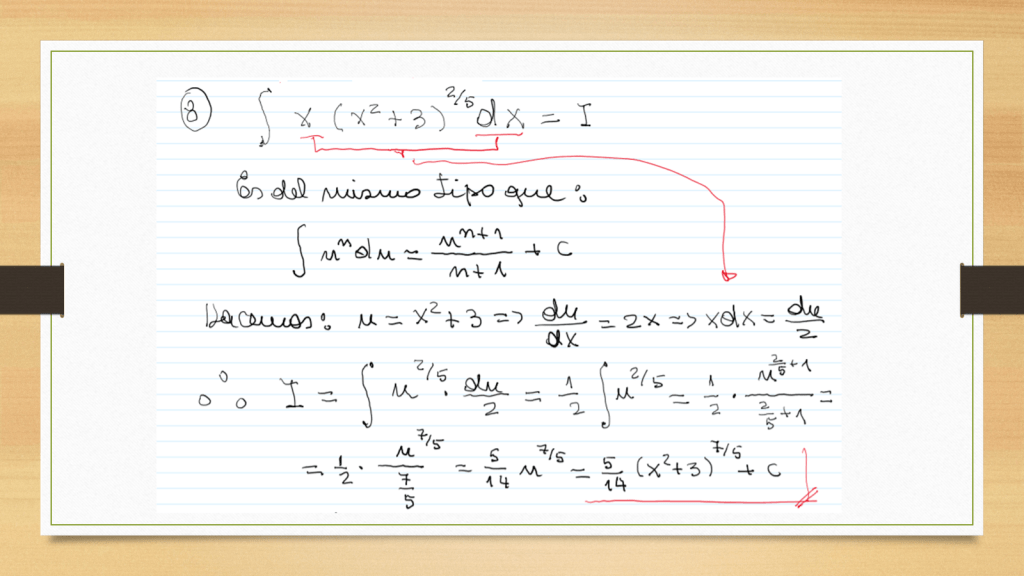 ⑧ ∫ x (x² + 3)^2/5 dx = I
Es del mismo tipo que:
∫ uⁿ du = uⁿ⁺¹/n+1 + C
Hacemos: u = x² + 3 => du/dx = 2x => x dx = du/2
∴ I = ∫ u^2/5 · du/2 = 1/2 ∫ u^2/5 = 1/2 · u^(2/5 + 1)/(2/5 + 1) =
= 1/2 · u^7/5/(7/5) = 5/14 u^7/5 = 5/14 (x² + 3)^7/5 + C